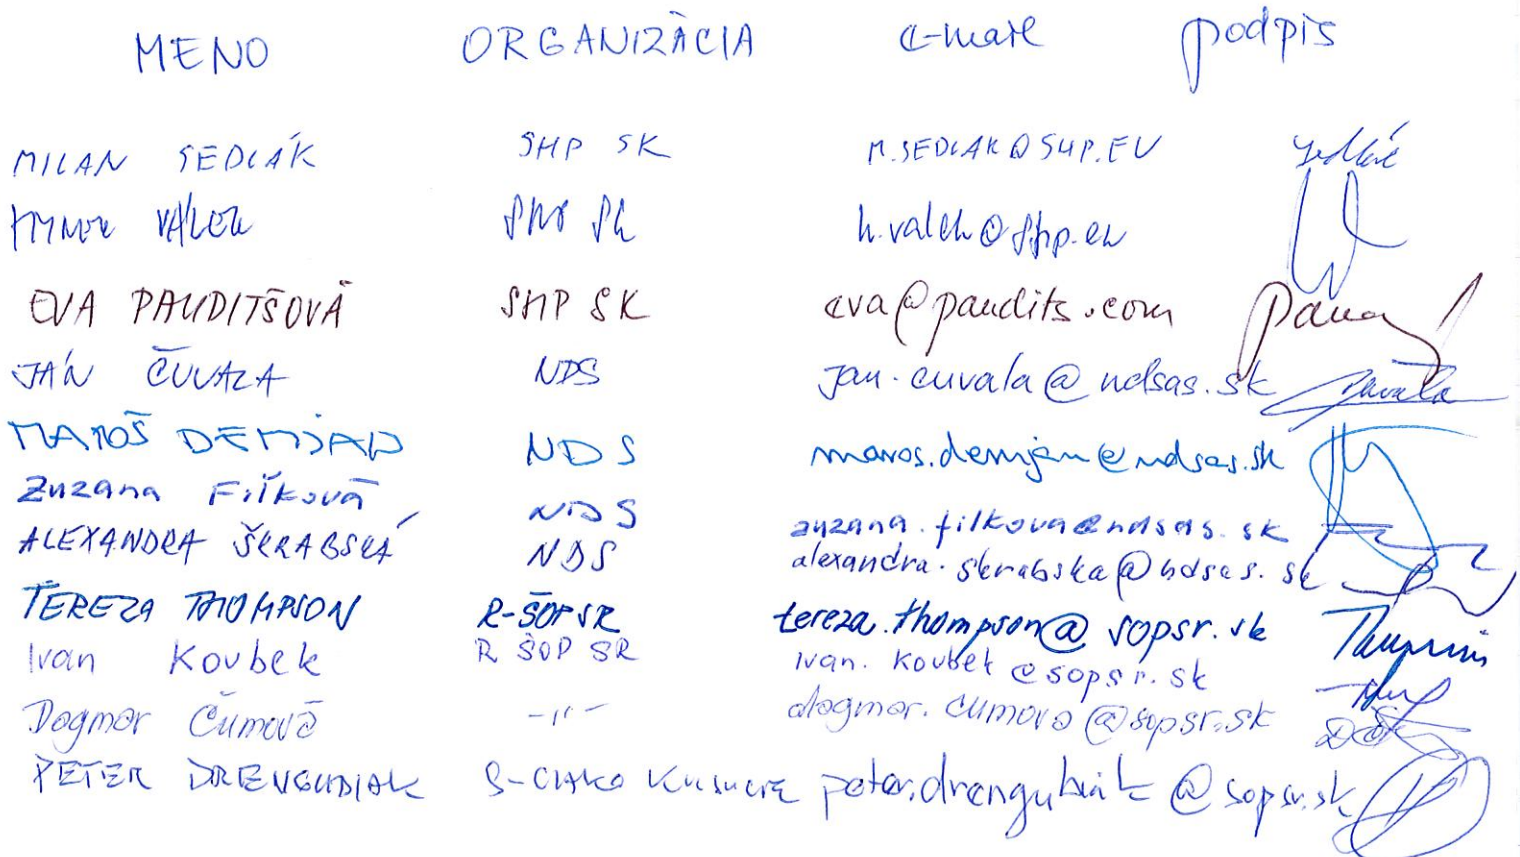 MENO ORGANIZÁCIA e-mail podpis
MILAN SEDLÁK SHP SK M.SEDLAK@SHP.EU
HYNEK VÁLEK SHP SK h.valek@shp.eu
EVA PAUDITŠOVÁ SHP SK eva@paudits.com
JÁN ČUVALA NDS jan.cuvala@ndsas.sk Čuvala
MAROŠ DEMJAN NDS maros.demjan@ndsas.sk
Zuzana Fiľková NDS zuzana.filkova@ndsas.sk
ALEXANDRA ŠKRABSKÁ NDS alexandra.skrabska@ndsas.sk
TEREZA THOMPSON R-ŠOP SR tereza.thompson@sopsr.sk
Ivan Koubek R ŠOP SR Ivan.Koubek@sopsr.sk
Dagmar Čumová -"- dagmar.cumova@sopsr.sk
PETER DRENGUBIAK S-CHKO peter.drengubiak@sopsr.sk